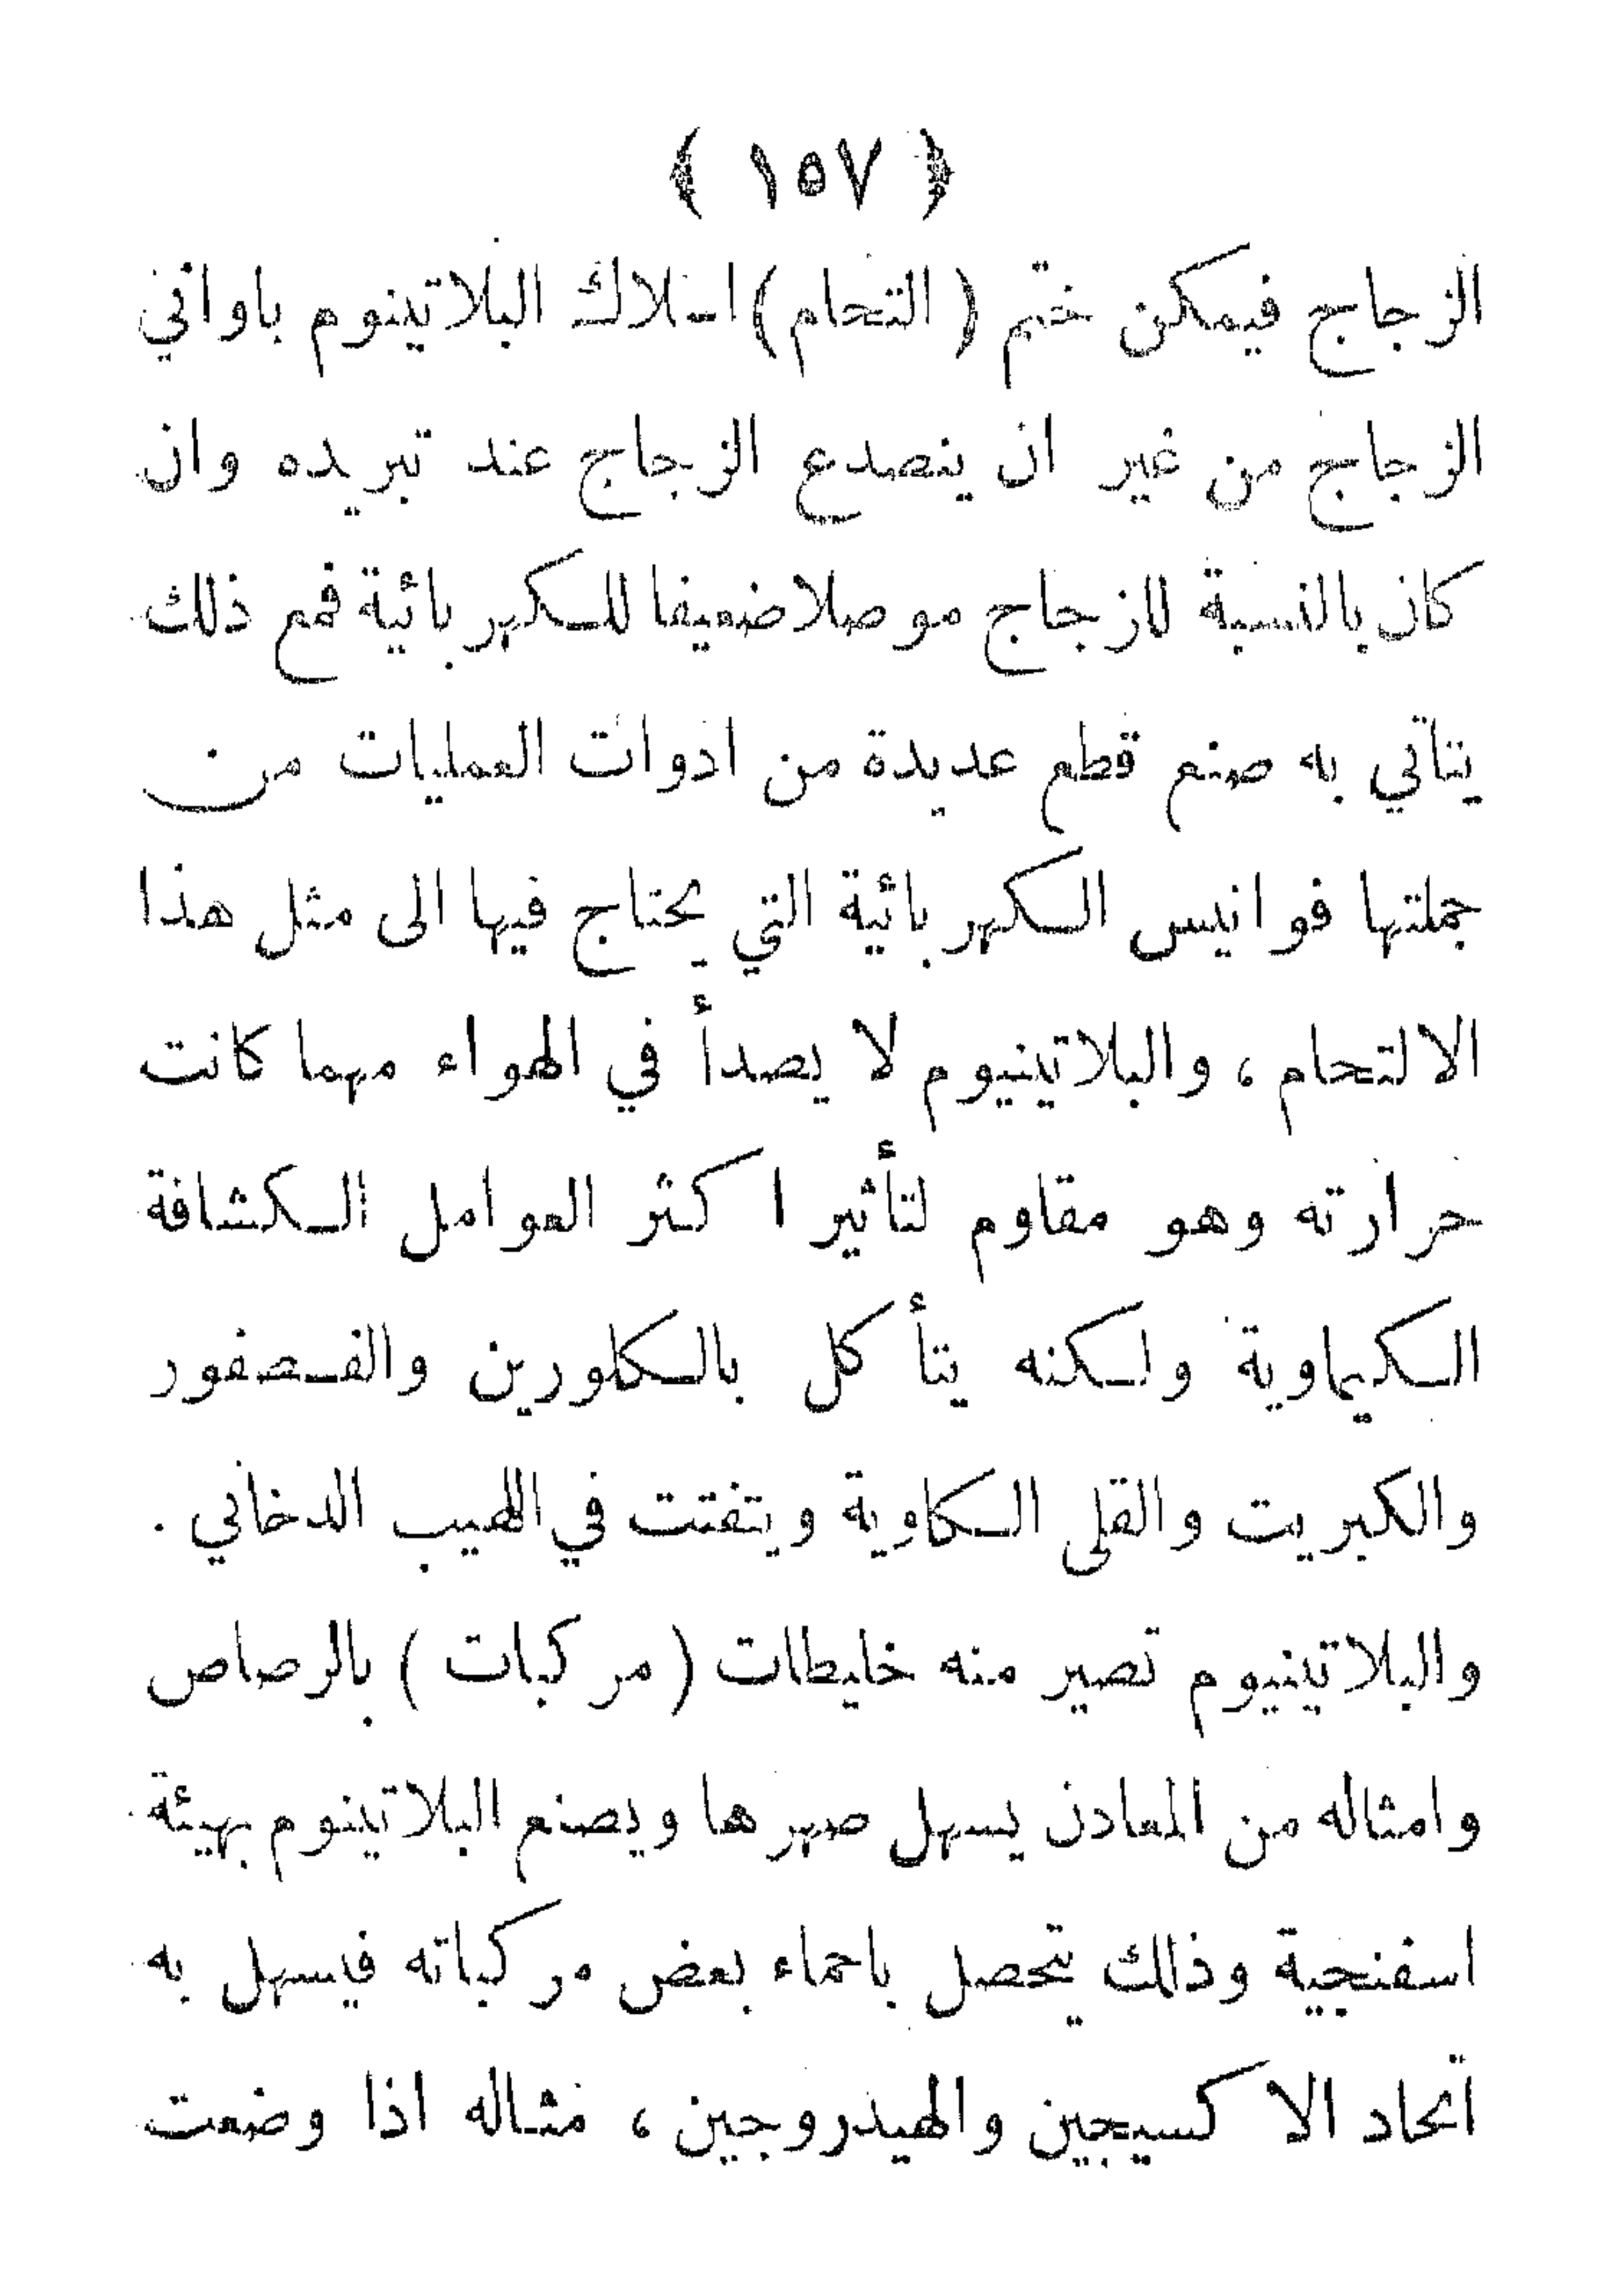 ﴿ ١٥٧ ﴾
الزجاج فيمكن ختم ( التحام ) اسلاك البلاتينوم باواني
الزجاج من غير ان ينصدع الزجاج عند تبريده وان
كان بالنسبة للزجاج موصلا ضعيفا للكهربائية فمع ذلك
يتأتي به صنع قطع عديدة من ادوات العمليات من
جملتها فوانيس الكهربائية التي يحتاج فيها الى مثل هذا
الالتحام ، والبلاتينيوم لا يصدأ في الهواء مهما كانت
حرارته وهو مقاوم لتأثير اكثر العوامل الكشافة
الكيماوية ولكنه يتأكل بالكلورين والفصفور
والكبريت والقلى الكاوية ويتفتت في اللهيب الدخاني .
والبلاتينيوم تصير منه خليطات ( مركبات ) بالرصاص
وامثاله من المعادن يسهل صهرها ويصنع البلاتينوم بهيئة
اسفنجية وذلك يتحصل باحماء بعض مركباته فيسهل به
اتحاد الاكسيجين والهيدروجين ، مثاله اذا وضعت